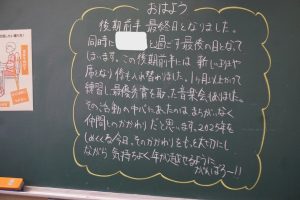 おはよう
後期前半最終日となりました。
同時に と過ごす最後の日として
います。この後期前半には新しい
席になり係も入れ替わりました。1ヶ月以上かけて
練習し最優秀賞を取った音楽会もありました。
その活動の中心にあったのはまちがいなく
仲間とのかかわりだと思います。2025年を
しめくくる今日、そのかかわりをもっと大切にし
ながら気持ちよく年が越せるように
がんばろー!!